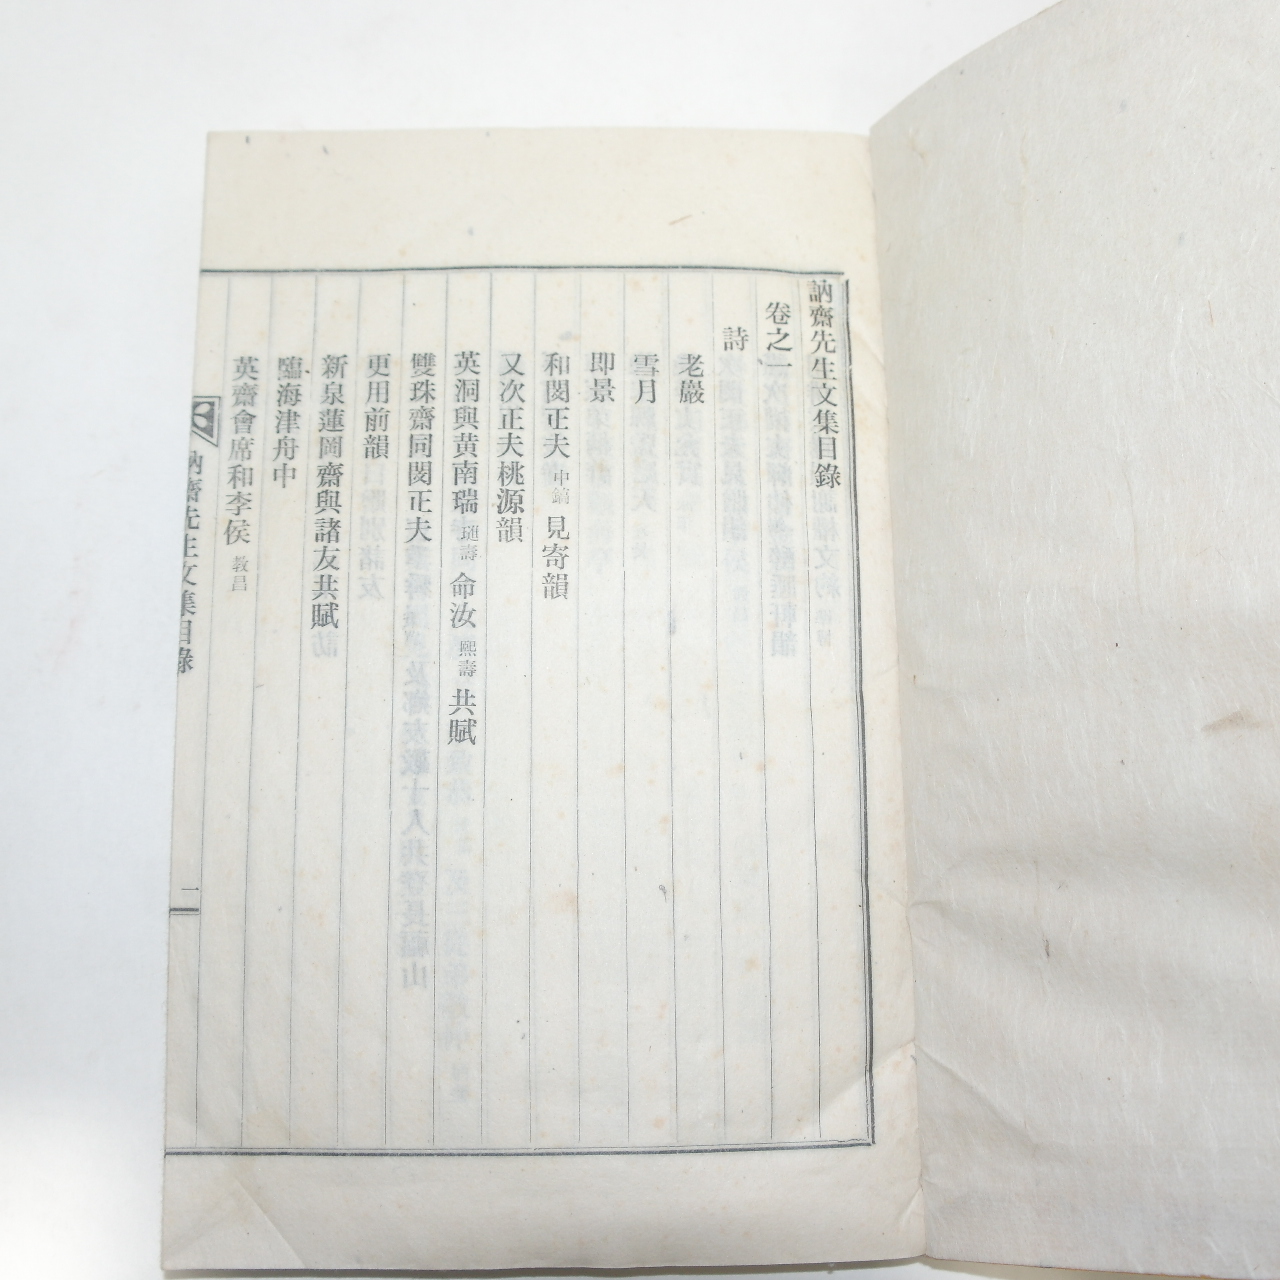 訥齋先生文集目錄
卷之一
詩
老巖
雪月
即景
和閔正夫中鎬見寄韻
又次正夫桃源韻
英洞與黄南瑞璡壽命汝熙壽共賦
雙珠齋同閔正夫
更用前韻
新泉蓮岡齋與諸友共賦
臨海津舟中
英齋會席和李侯教昌
訥齋先生文集目錄
一